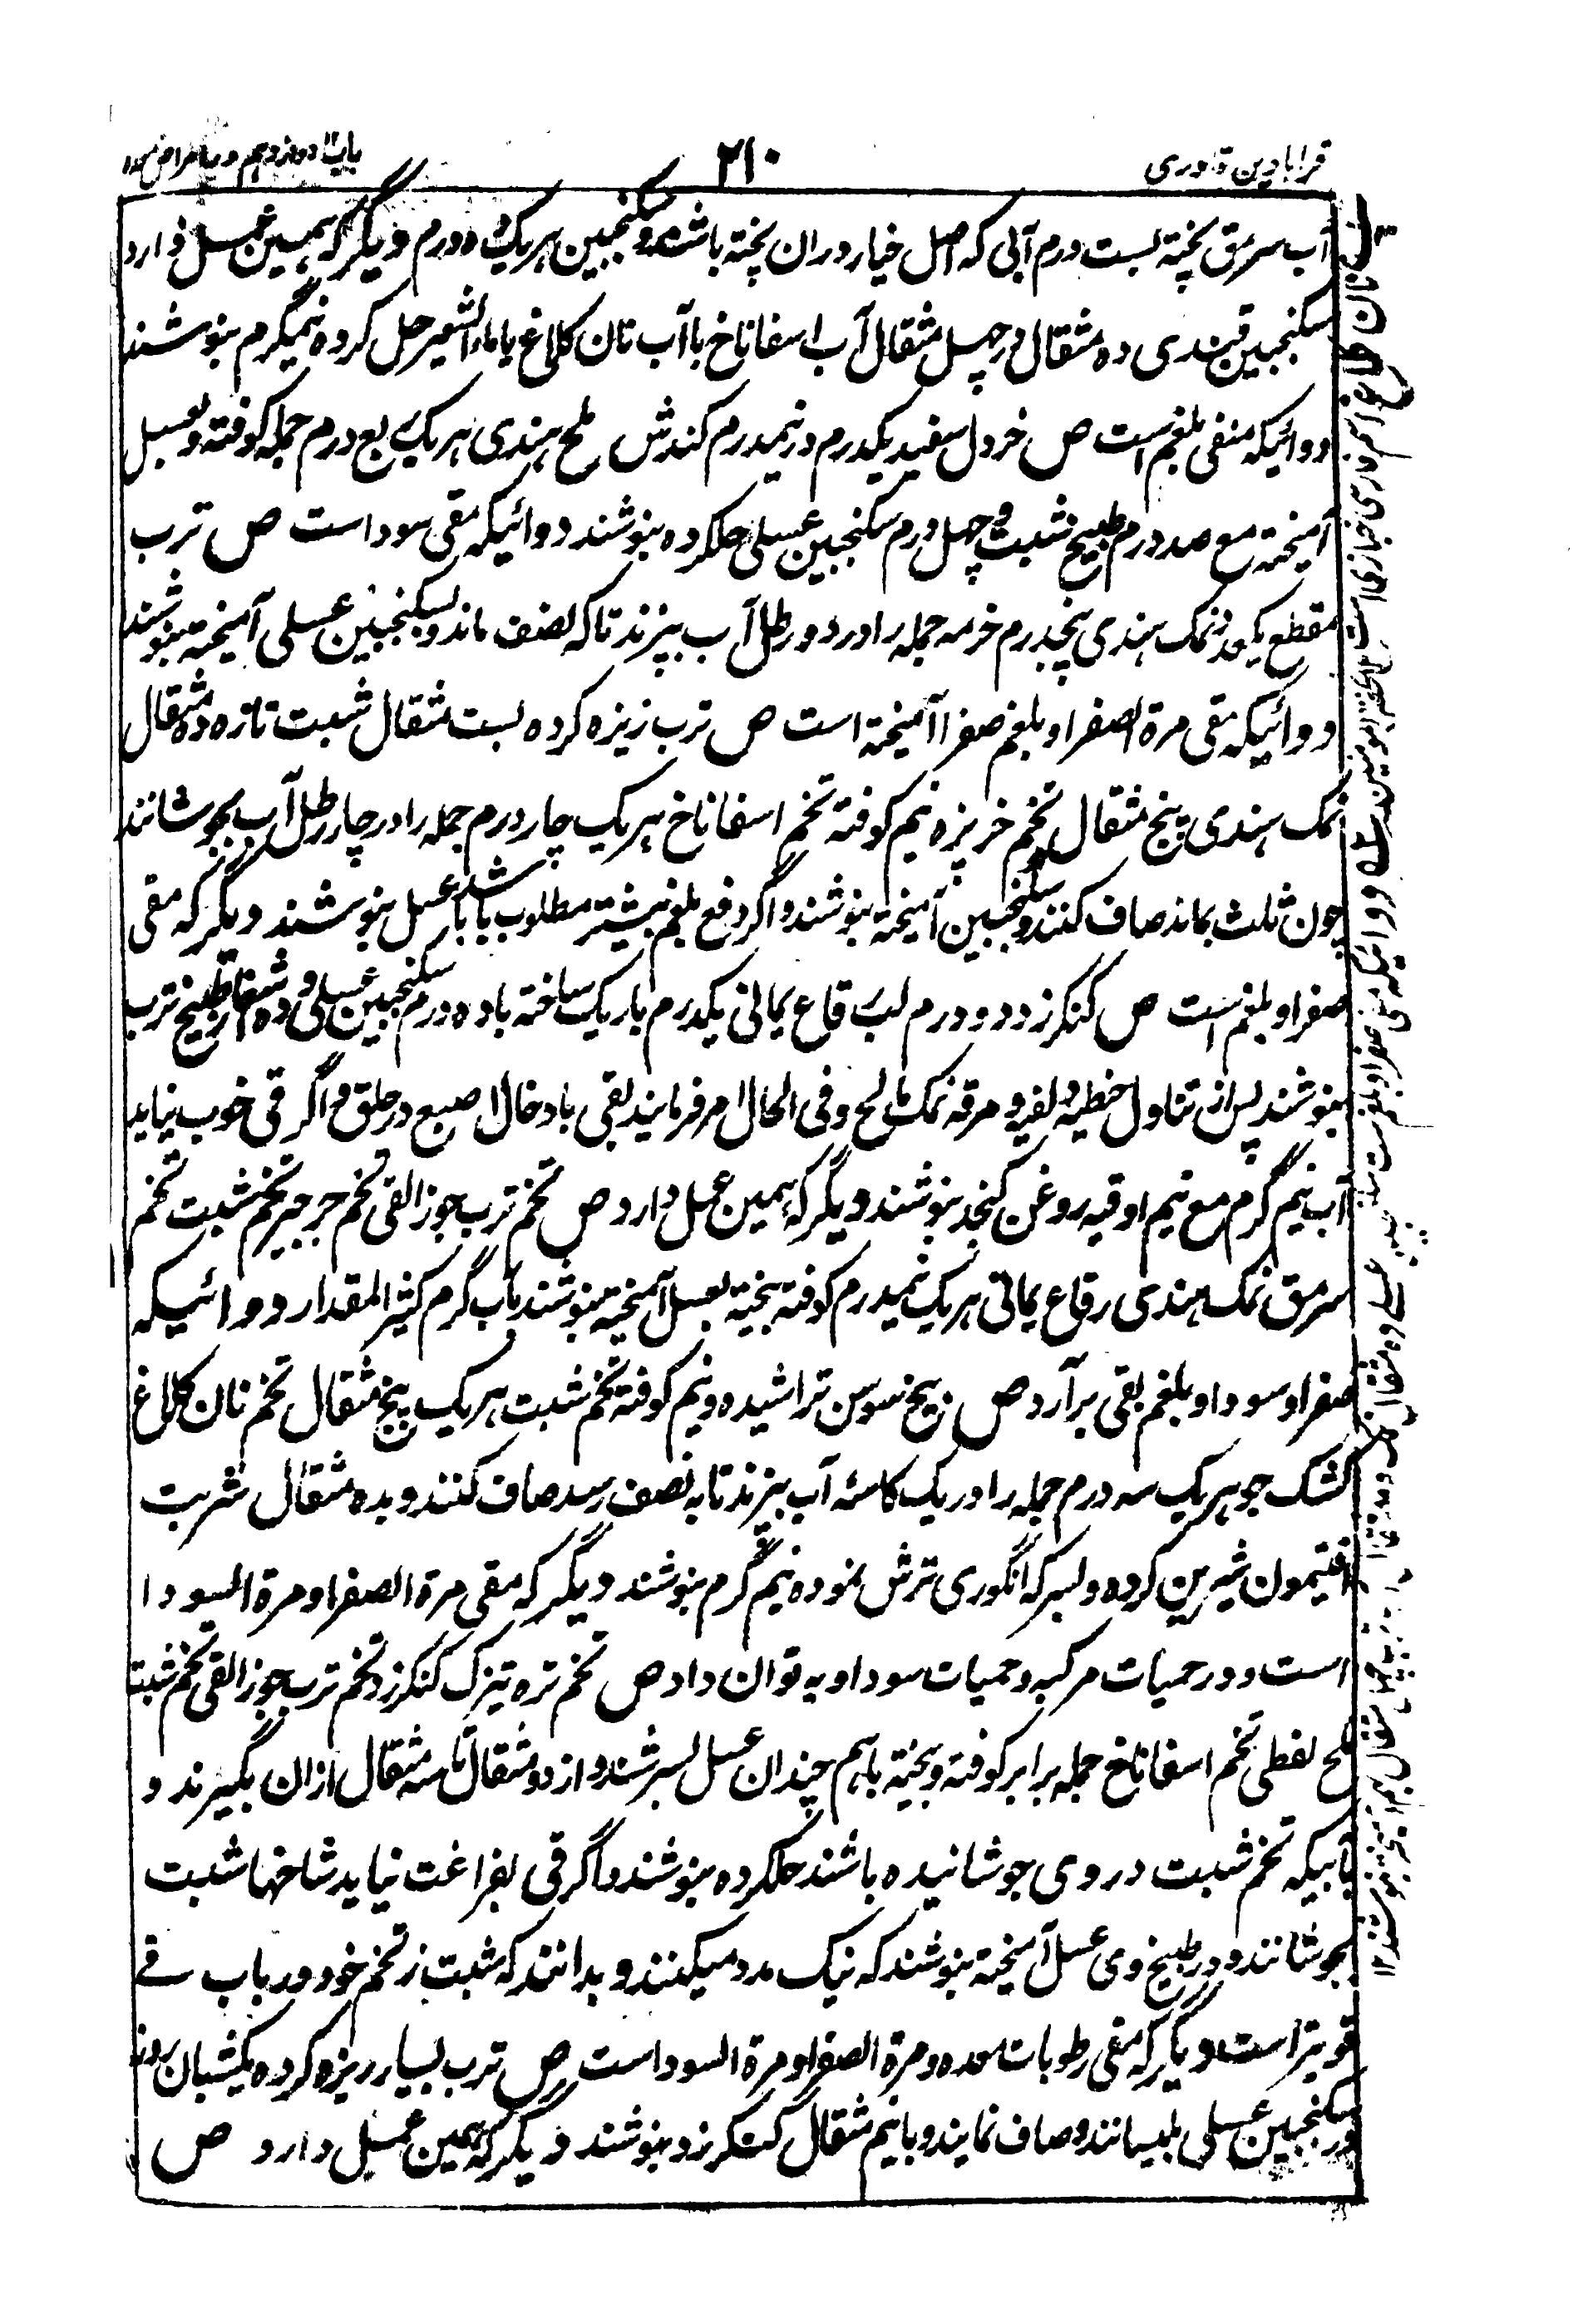 قرابادین قادری
۲۱۰
باب دوازدهم در امراض معده
آب سرمق پخته بست درم آبی که اصل خیار دران پخته باشند و سکنجبین هریک ده درم دیگر که همین عمل دارد
سکنجبین قندی ده مثقال در چهل مثقال آب اسفاناخ با آب نان کلاغ یا ماء الشعیر حل کرده نیمگرم بنوشند
دوائیکه منقی بلغم است ص خردل سفید یکدرم و نیمدرم کندش ملح هندی هریک ربع درم جمله کوفته و بعسل
آمیخته مع صد درم طبیخ شبت و چهل درم سکنجبین عسلی حلکرده بنوشند دوائیکه مقی سودا است ص ترب
مقطع یکعدد نمک هندی پنجدرم خرمه جمله را در دو رطل آب بپزند تا که نصف ماند و بسکنجبین عسلی آمیخته بنوشند
دوائیکه مقی مرة الصفرا و بلغم صفرا آمیخته است ص ترب ریزه کرده بست مثقال شبت تازه ده مثقال
نمک هندی پنج مثقال تخم خرپزه نیم کوفته تخم اسفاناخ هریک چار درم جمله را در چار رطل آب بجوشانند
چون ثلث بماند صاف کنند و سکنجبین آمیخته بنوشند و اگر دفع بلغم بیشتر مطلوب باشد با عسل بنوشند دیگر که مقی
صفرا و بلغم است ص کنکرزد دو درم لب رقاع یمانی یکدرم باریک ساخته با ده درم سکنجبین عسلی و ده مثقال طبیخ ترب
بنوشند پس از تناول اغذیه و مرقه نمک مالح و فی الحال امر فرمایند بقی بادخال اصبع در حلق و اگر قی خوب نیاید
آب نیم گرم مع نیم اوقیه روغن کنجد بنوشند دیگر که همین عمل دارد ص تخم ترب جوز القی تخم جرجیر تخم شبت تخم
سرمق نمک هندی رقاع یمانی هریک نیمدرم کوفته بیخته بعسل آمیخته بنوشند بآب گرم کثیر المقدار دوائیکه
صفرا و سودا و بلغم بقی بر آرد ص بیخ سوسن تراشیده و نیم کوفته تخم شبت هریک پنج مثقال تخم نان کلاغ
کشک جو هریک سه درم جمله را در یک کاسه آب بپزند تا به نصف رسد صاف کنند و بده مثقال شربت
افتیمون شیرین کرده و بسرکه انگوری ترش نموده نیم گرم بنوشند دیگر که مقی مرة الصفرا و مرة السودا
است و در حمیات مرکبه و حمیات سوداویه توان داد ص تخم تره تیزک کنکرزد تخم ترب جوز القی تخم شبت
ملح نفطی تخم اسفاناخ جمله برابر کوفته و بیخته باهم چندان عسل بسرشند و از دو مثقال تا سه مثقال ازان بگیرند و
بآبیکه تخم شبت در وی جوشانیده باشند حلکرده بنوشند و اگر قی بفراغت نیاید شاخها شبت
بجوشانند و در طبیخ وی عسل آمیخته بنوشند که نیک مدد میکنند و بدانند که شبت ز تخم خود در باب قے
قویتر است دیگر که مقی رطوبات معده و مرة الصفرا و مرة السودا است ص ترب بسیار ریزه کرده یکشبان روز
در سکنجبین عسلی بخیسانند و صاف نمایند و با نیم مثقال کنکرزد بنوشند دیگر که همین عمل دارد ص